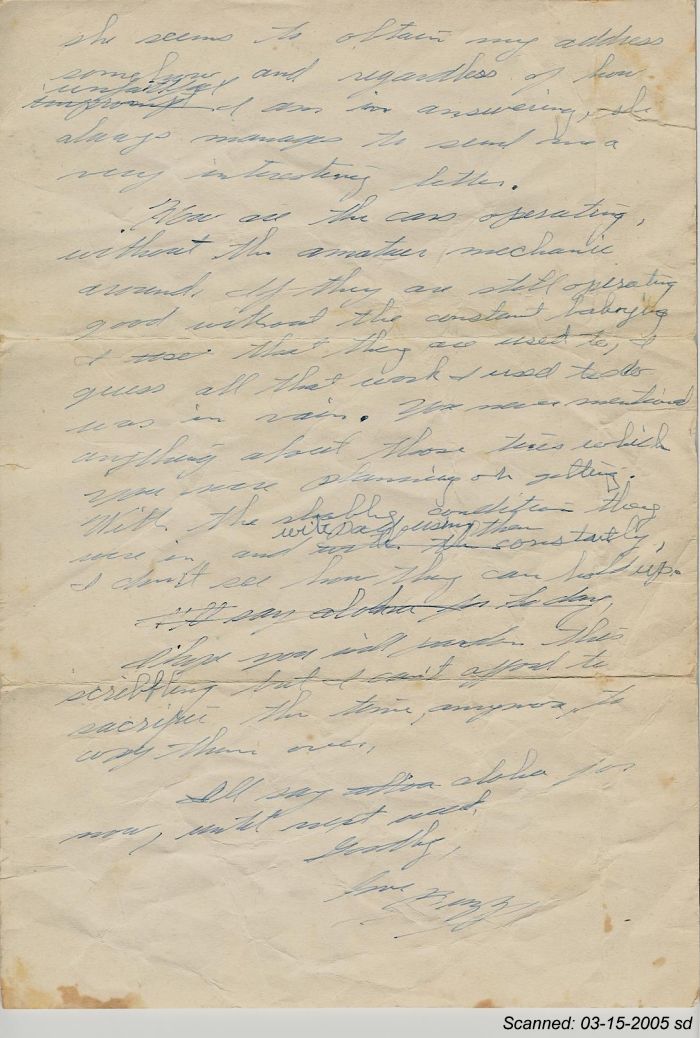 she seems to obtain my address
somehow and regardless of how
unfaithful
I am in answering, she
always manages to send me a
very interesting letter.
How are the cars operating,
without the amateur mechanic
around. If they are still operating
good without the constant babying
I use that they are used to, I
guess all that work I used to do
was in vain. You never mentioned
anything about those tires which
you were planning on getting.
With the shabby condition they
were in and with dad using them constantly,
I don't see how they can hold up.
I'll say aloha for today,
I hope you will pardon this
scribbling but I can't afford to
sacrifice the time, anymore, to
copy them over.
I'll say aloha for
now, until next week.
Goodby,
Love Buzz
Scanned: 03-15-2005 sd